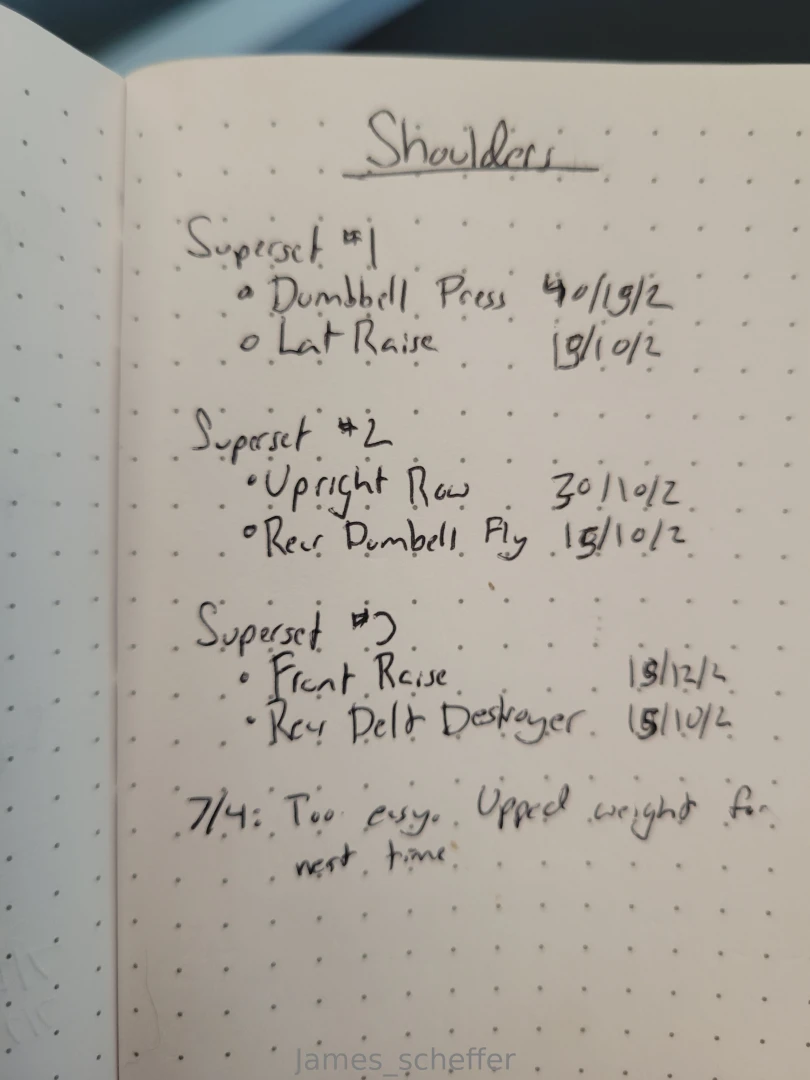 Shoulders
Superset #1
Dumbbell Press 40/15/2
Lat Raise 15/10/2
Superset #2
Upright Row 30/10/2
Rear Dumbell Fly 15/10/2
Superset #3
Front Raise 15/12/2
Rear Delt Destroyer 15/10/2
7/4: Too easy. Upped weight for
next time.
James_scheffer